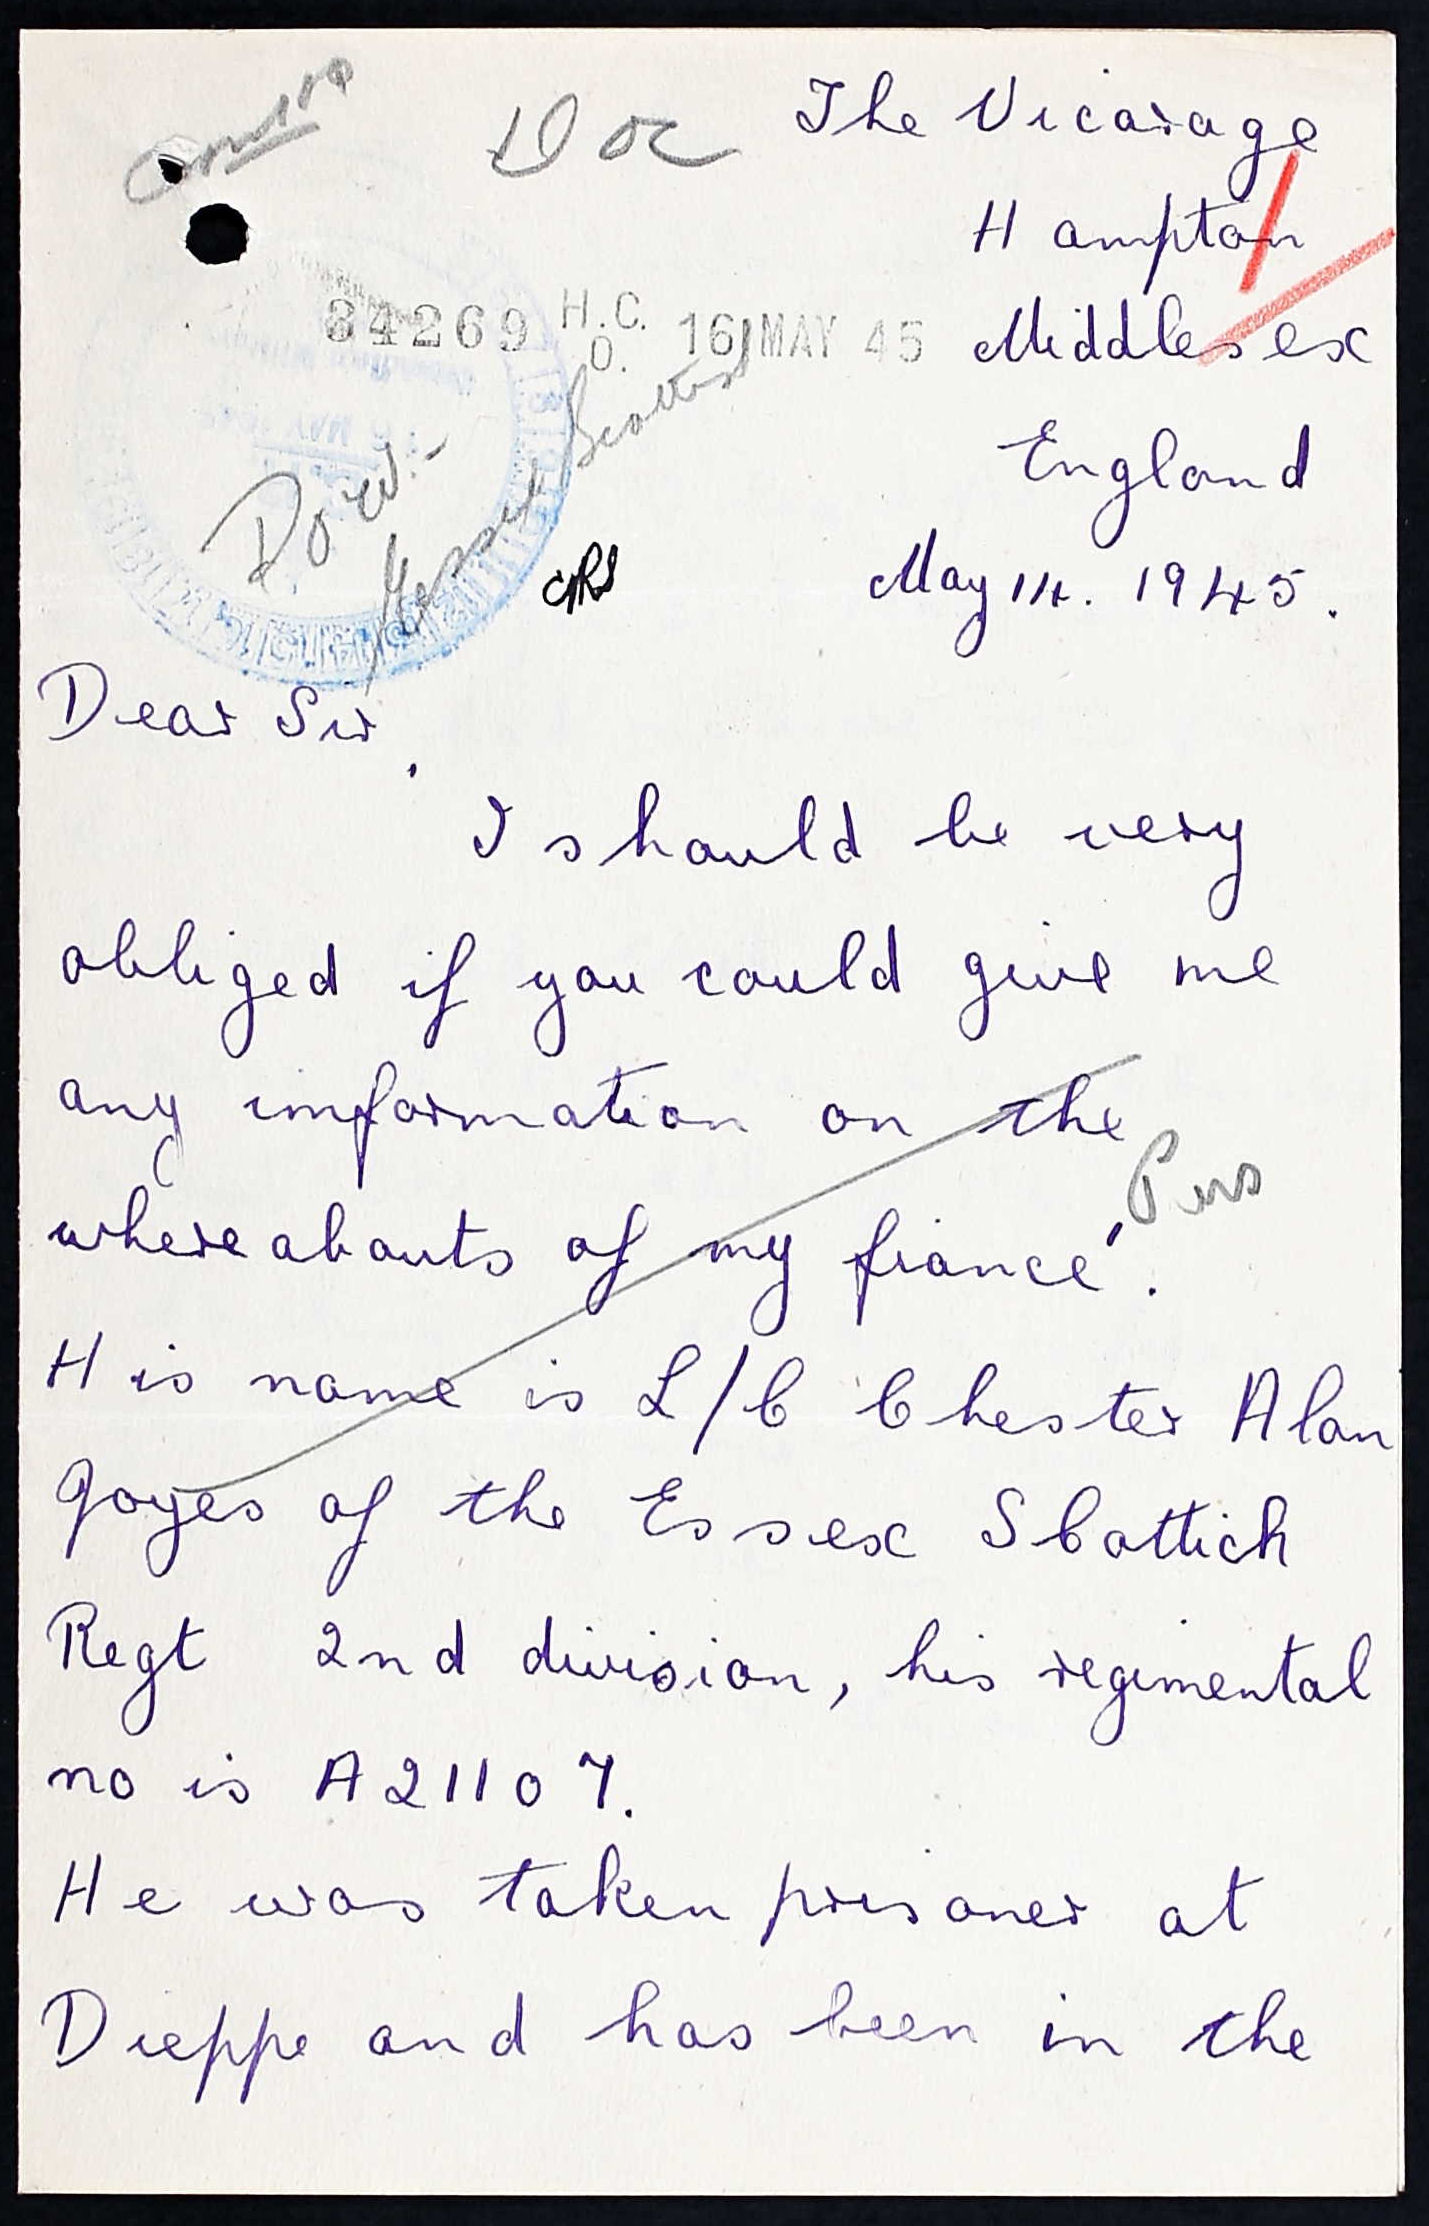 Doc
The Vicarage
Hampton
Middlesex
England
84269 H.C.O. 16 MAY 45
Essex Scottish
May 14. 1945.
Dear Sir,
I should be very
obliged if you could give me
any imformation on the
whereabouts of my fiancé.
Pws
His name is L/C Chester Alan
Goyes of the Essex Scottich
Regt 2nd division, his regimental
no is A21107.
He was taken prisoner at
Dieppe and has been in the